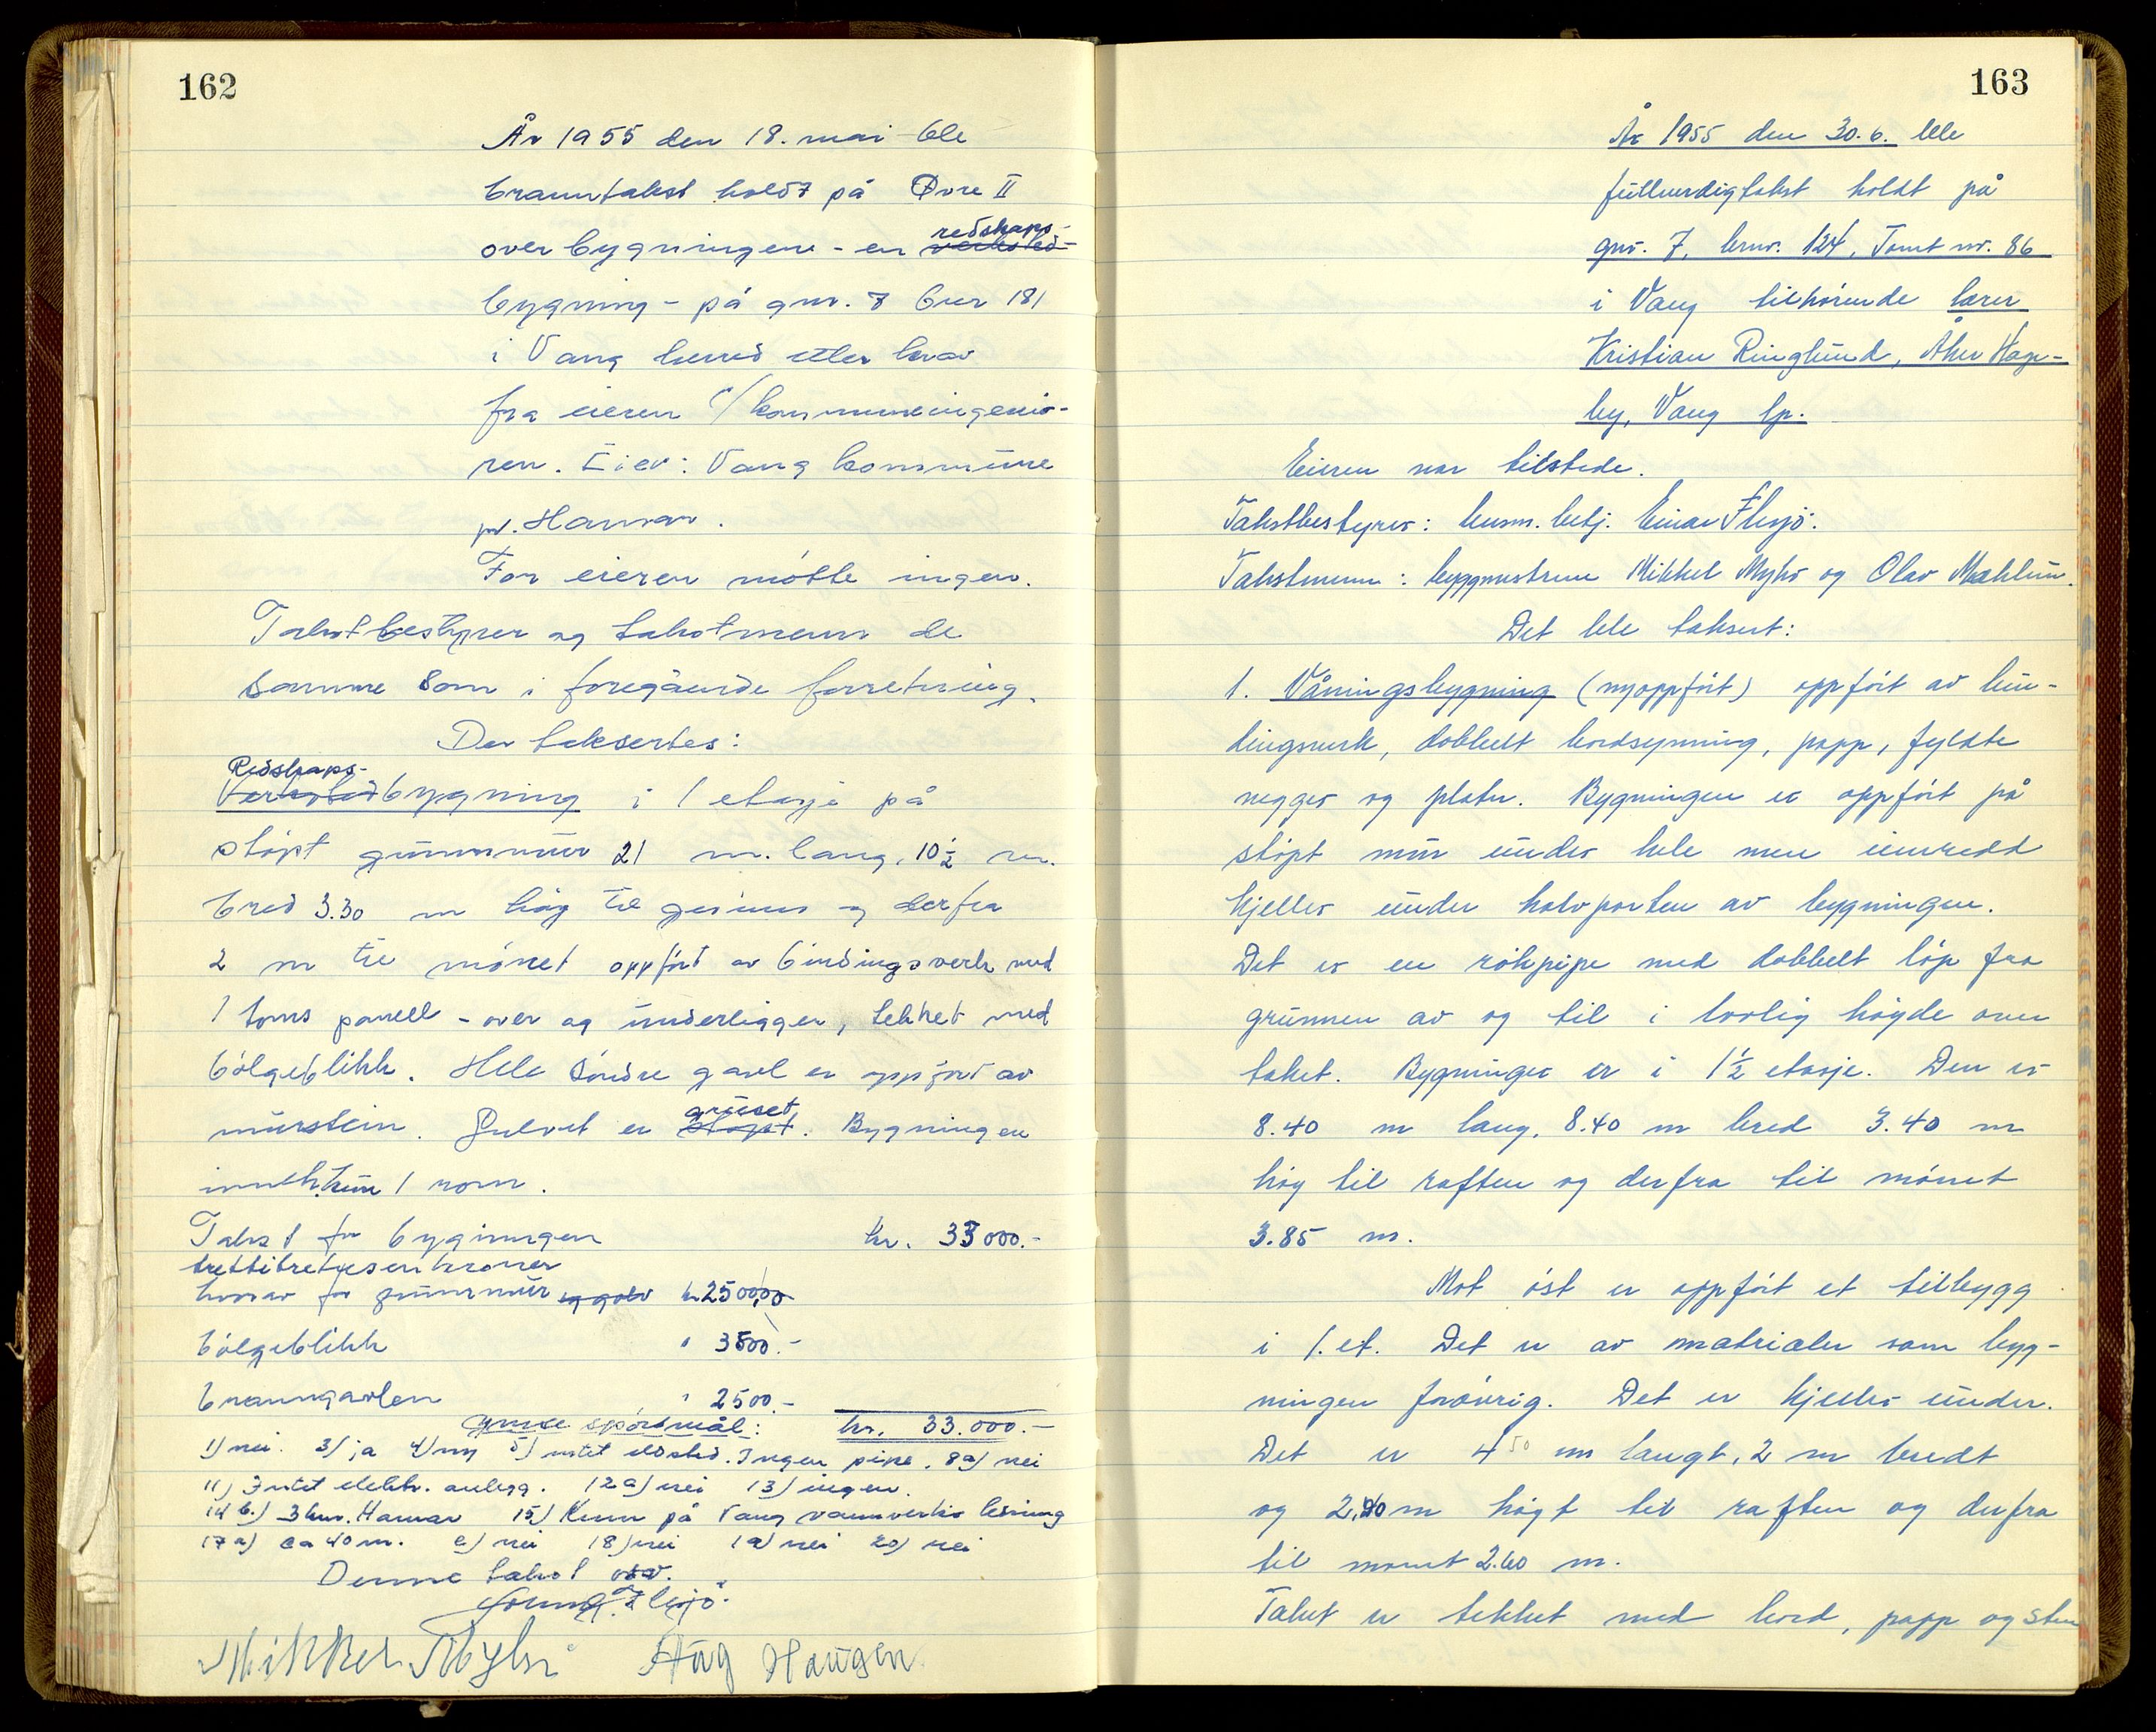 162
År 1955 den 18. mai ble
branntakst holdt på Øvre II
redskaps-
over bygningene - en verksted-
bygning - på gnr. 7 bnr 181
i Vang herred etter krav
fra eieren v/kommuneingeniø-
ren. Eier: Vang kommune
pr. Hamar.
For eieren møtte ingen.
Takstbestyrer og takstmenn de
samme som i foregående forretning.
Der taksertes:
Redskaps-
Verkstedbygning i 1 etasje på
støpt grunnmur 21 m. lang, 10 1/2 m.
bred 3.30 m høg til gesims og derfra
2 m til mønet oppført av bindingsverk med
1 toms panell - over og underligger, tekket med
bølgeblikk. Hele søndre gavl er oppført av
gruset
murstein. Gulvet er støpt. Bygningen
innth. kun 1 rom.
Takst for bygningen kr. 33000.-
trettitretusenkroner
hvorav for grunnmur og golv kr 2500,00
bølgeblikk " 3500.-
branngavlen " 2500.-
kr. 33.000.-
spørsmål:
1) nei. 3) ja 4) ny 5) intet ildsted. Ingen pipe. 8a) nei
11) Intet elektr. anlegg. 12a) nei 13) ingen.
14 b.) 3 km. Hamar 15) Kum på Vang vannverks ledning
17 a) ca 40 m. c) nei 18) nei 19) nei 20) nei
Denne takst osv.
Flesjø.
Mikkel Myhr Aug Haugen
163
År 1955 den 30.6. ble
fullverdigtakst holdt på
gnr. 7, bnr. 124, Tomt nr. 86
i Vang tilhørende lærer
Kristian Ringlund, Åker Hage-
by, Vang lp.
Eieren var tilstede.
Takstbestyrer: lensm. betj. Einar Flesjø.
Takstmenn: byggmestrene Mikkel Myhr og Olav Mæhlum.
Det ble taksert:
1. Våningsbygning (nyoppført) oppført av bin-
dingsverk, dobbelt bordsynning, papp, fyldte
vegger og plater. Bygningen er oppført på
støpt mur under hele men innredd
kjeller under halvparten av bygningen.
Det er en røkpipe med dobbelt løp fra
grunnen av og til i lovlig høyde over
taket. Bygninger er i 1 1/2 etasje. Den er
8.40 m lang, 8.40 m bred 3.40 m
høg til raften og derfra til mønet
3.85 m.
Mot øst er oppført et tilbygg
i 1. et. Det er av matrialer som byg-
ningen forøvrig. Det er kjeller under.
Det er 4 50 m langt, 2 m bredt
og 2,20 m høgt til raften og derfra
til mønet 2.60 m.
Taket er tekket med bord, papp og sten